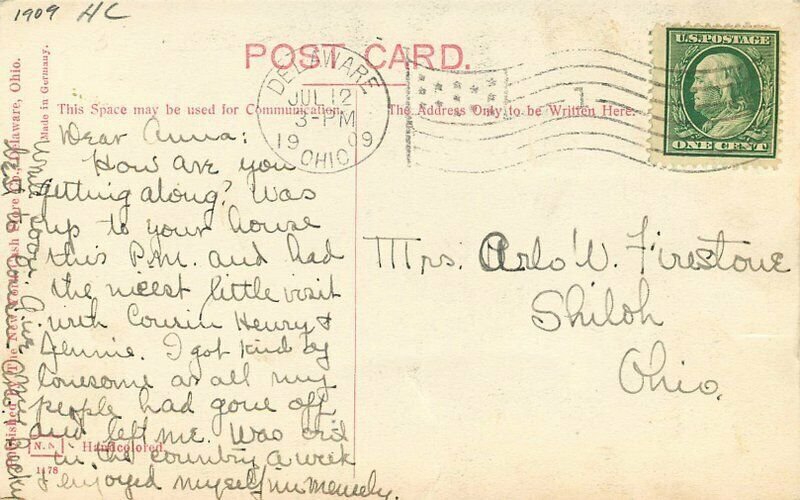 1909 HC
POST CARD.
U.S. POSTAGE
ONE CENT
DELAWARE
JUL 12
3-PM
1909
OHIO
1
This Space may be used for Communication.
The Address Only to be Written Here.
Dear Anna:
How are you
getting along? Was
up to your house
this P.M. and had
the nicest little visit
with Cousin Henry &
Jennie. I got kind of
lonesome as all my
people had gone off
and left me. Was out
in the country a week
& enjoyed myself immensely.
Write soon. Give
best to
Mrs. Arlo W. Firestone
Shiloh
Ohio.
Published by The New York Cash Store Co., Delaware, Ohio.
Made in Germany.
N.N
Handcolored.
1178